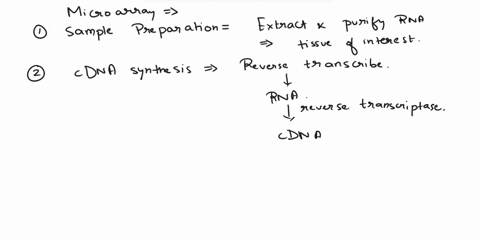 Microarray ⇒
① Sample Preparation = Extract & purify RNA
⇒ tissue of interest.
② cDNA synthesis ⇒ Reverse transcribe.
↓
RNA.
↓ reverse transcriptase.
cDNA